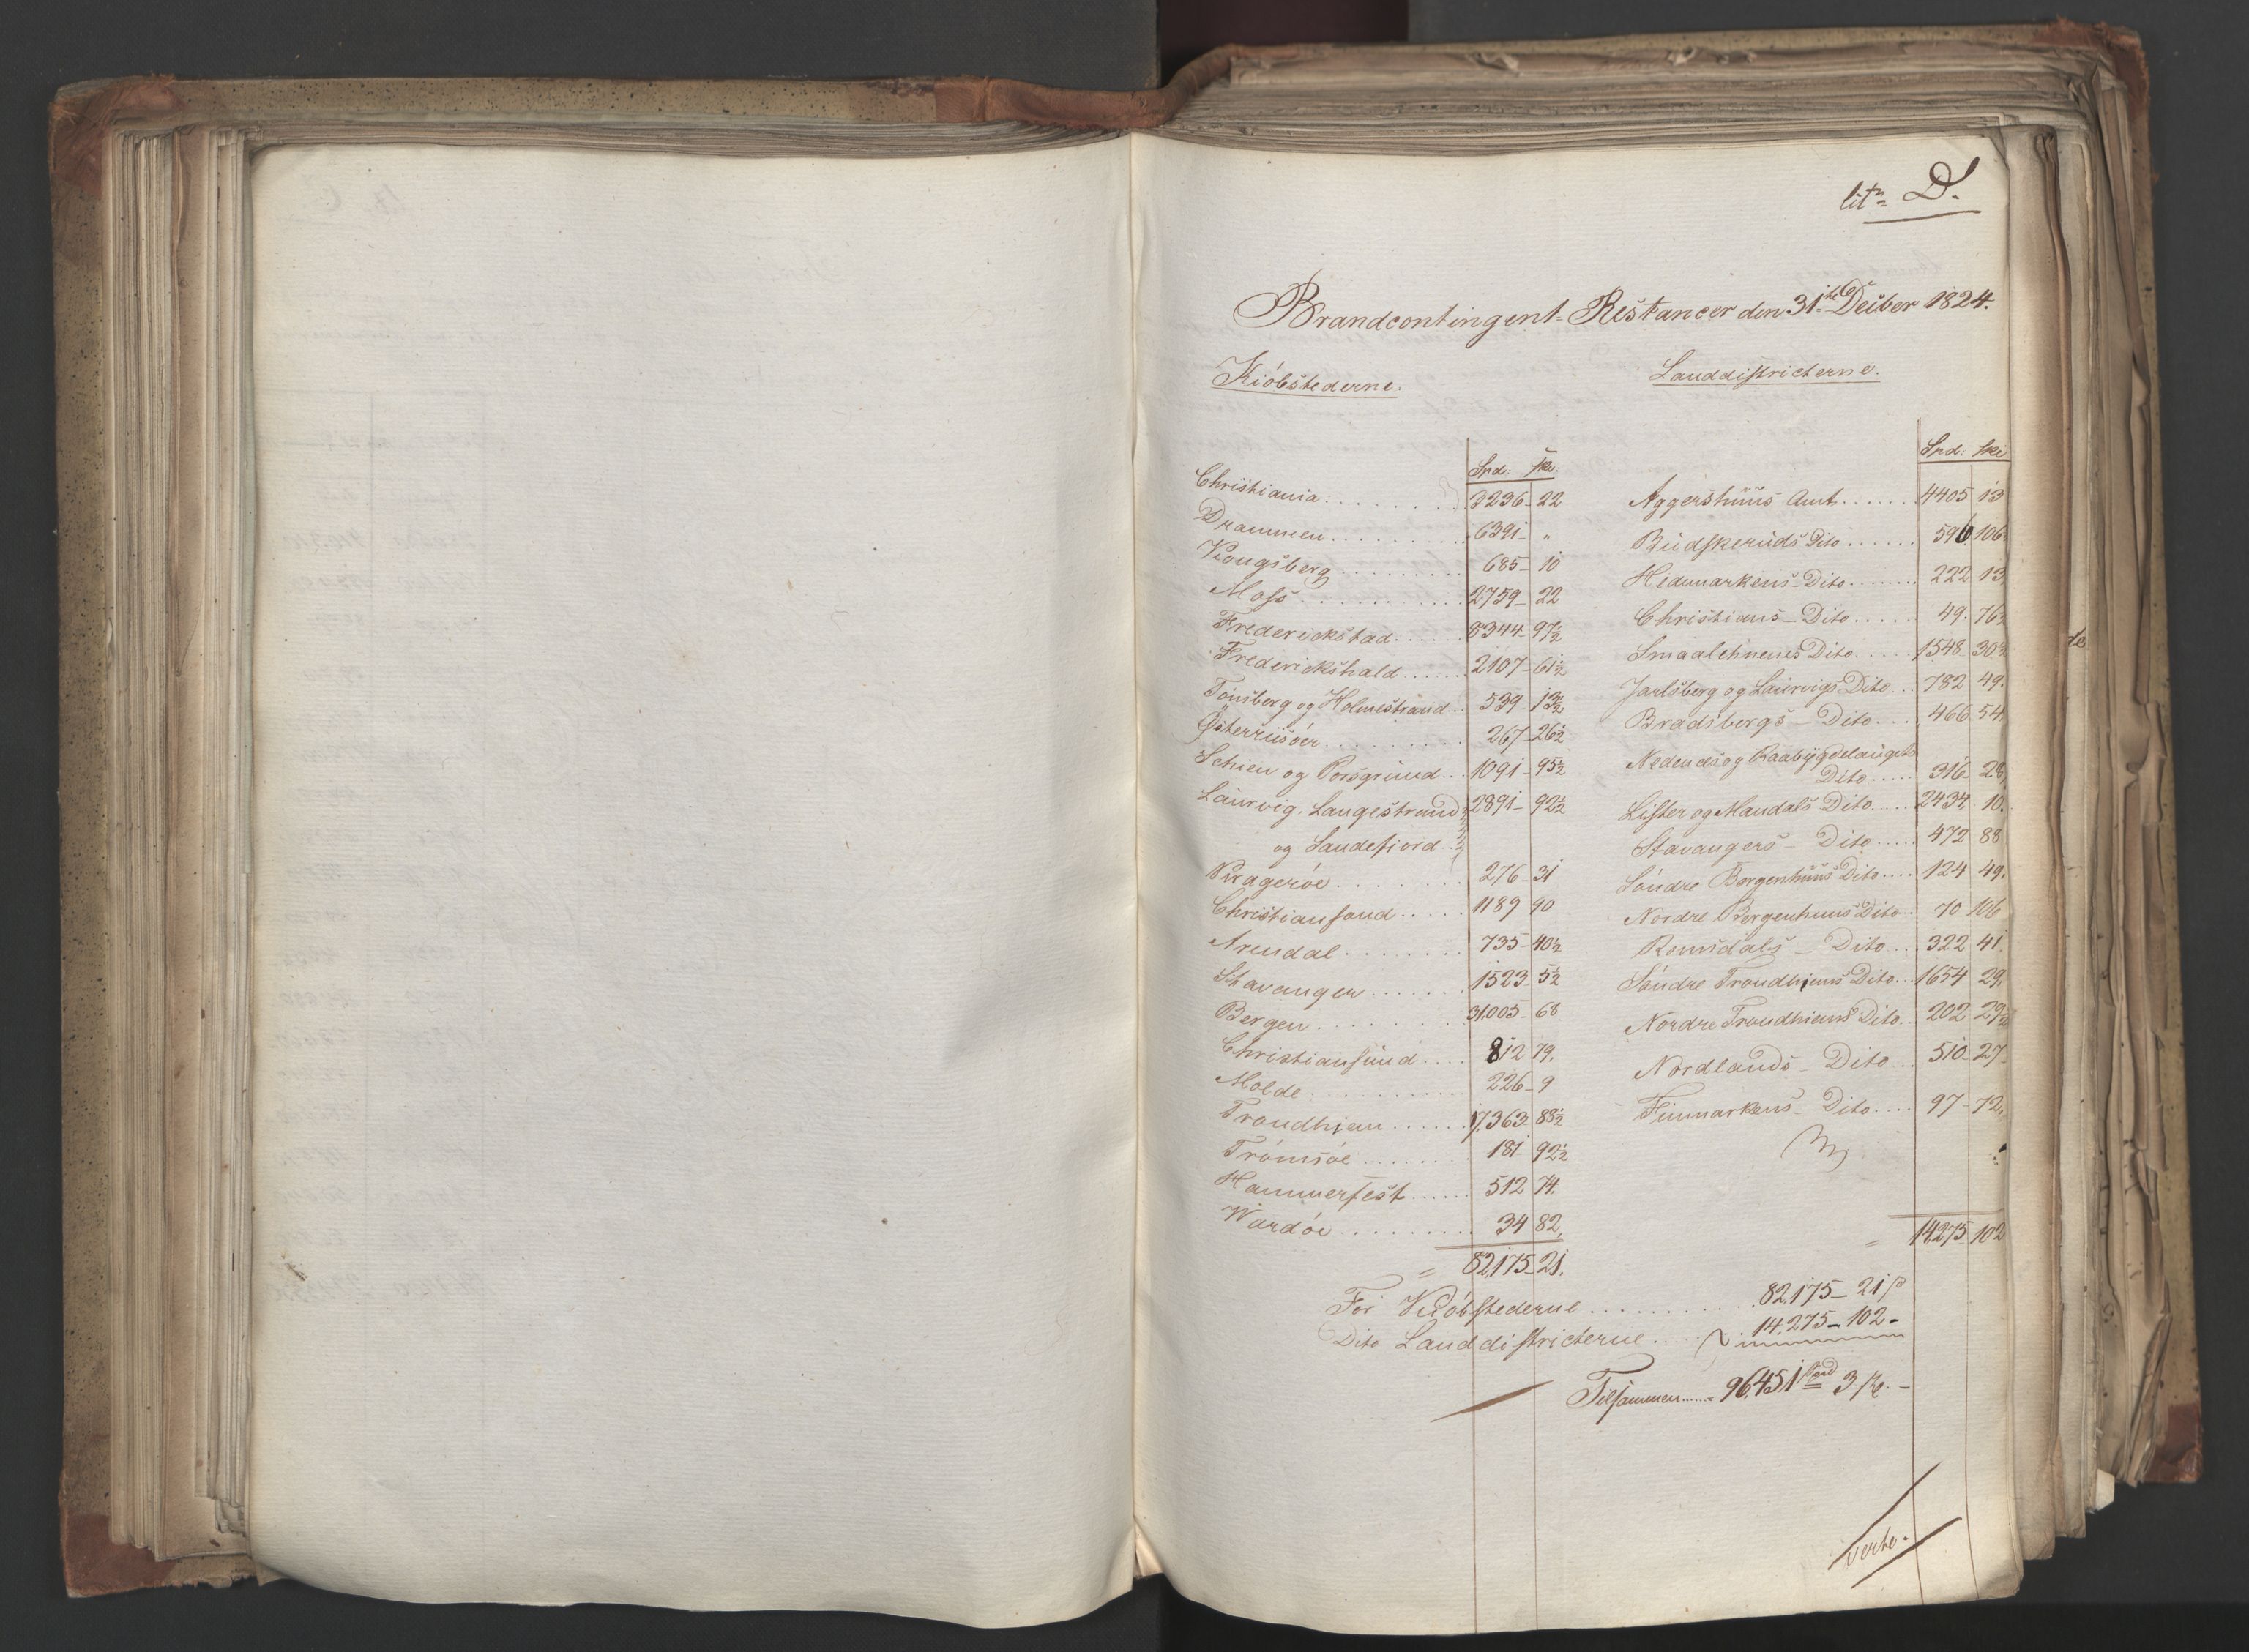 litr D.
Brandcontingent-Restancer den 31te Desbr 1824.
Kióbstederne.
Spd: sk:
Christiania ........ 3236 - 22
Drammen ........ 6391 - "
Kongsberg ........ 685 - 10
Moss ........ 2759 - 22
Frederickstad ...... 8344 - 97½
Frederickshald ...... 2107 - 61½
Tonsberg og Holmestrand .. 539 - 13½
Østerriisóer ........ 267 - 26½
Schien og Porsgrund ... 1091 - 95½
Laurvig, Langestrand 2891 - 92½
og Sandefiord
Kragerøe ........ 276 - 31
Christiansand ..... 1189 90
Arendal ........ 735 - 40½
Stavanger ....... 1523 - 5½
Bergen ........ 31005 - 68
Christiansund .... 812 79.
Molde .......... 226 - 9
Trondhiem ...... 17,363 88½
Tromsóe ........ 181 92½
Hammerfest ...... 512 74.
Wardóe ......... 34 82,
= 82,175 - 21.
Landdistricterne.
Spd: sk:
Aggershuus Amt ...... 4405 13
Budskeruds Dito ...... 596 106
Hedemarkens - Dito ....... 222 13
Christians - Dito ..... 49. 76½
Smaalehnenes Dito ..... 1548 30½
Jarlsberg og Laurvigs Dito ... 782 49.
Bradsbergs - Dito .... 466 54.
Nedenes og Raabygdelaugets
Dito ..... 316 28
Lister og Mandals Dito ..... 2434 10.
Stavangers - Dito ..... 472 88
Sóndre Bergenhuus Dito .... 124 49.
Nordre Bergenhuus Dito .. 70 106
Romsdals - Dito ... 322 41.
Sóndre Trondhiems Dito ... 1654 29.
Nordre Trondhiems Dito .. 202 29½
Nordlands - Dito ... 510 - 27
Finmarkens - Dito .... 97 - 72.
= 14275 102
For Kióbstederne ........... 82,175 - 21 ß
Dito Landdistricterne .... 14,275 - 102 -
Tilsammen ...... = 96,451 Spd 3 sk. -
verte.